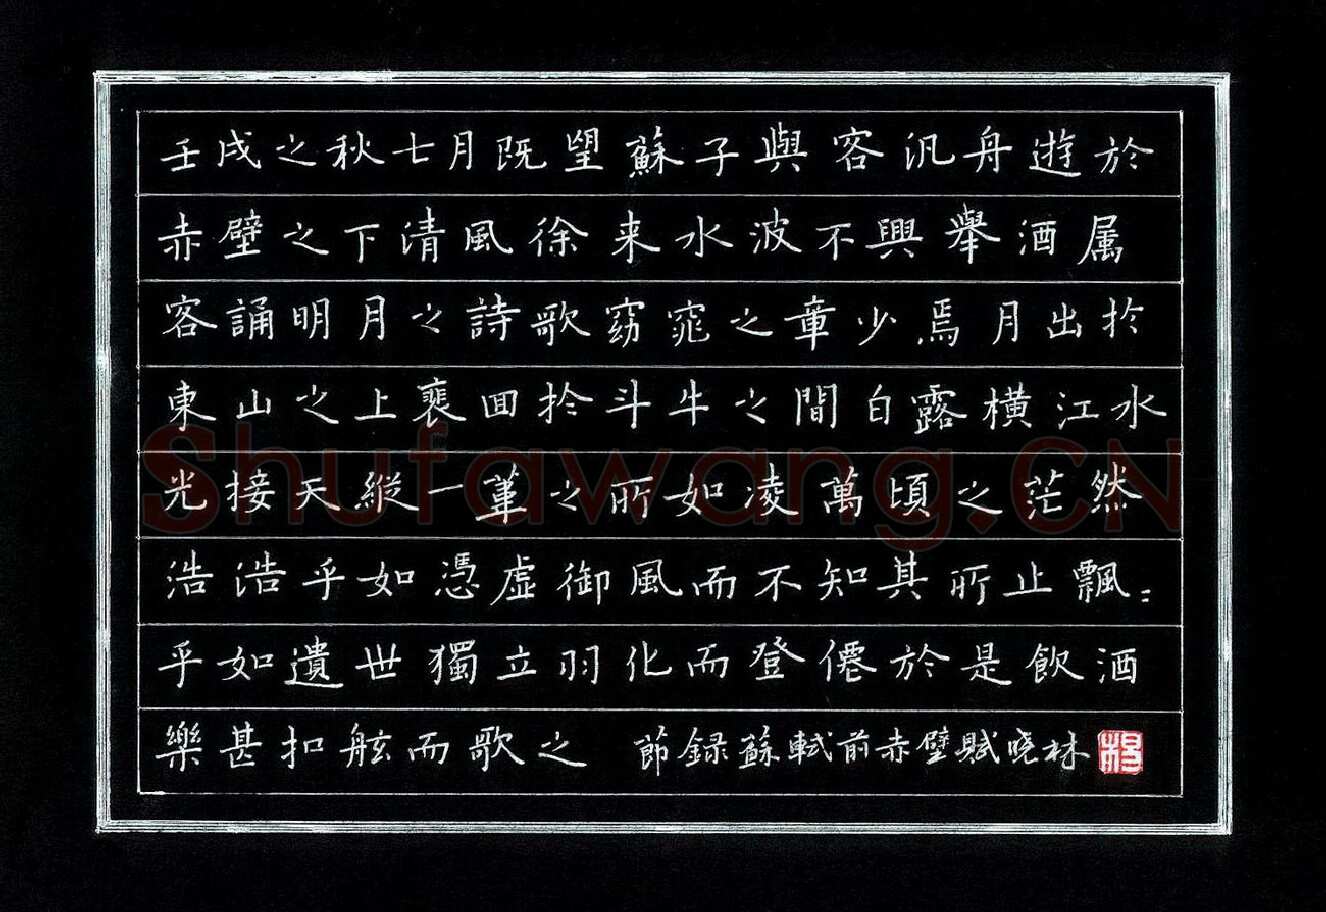 壬戌之秋七月既望蘇子與客汎舟遊於
赤壁之下清風徐来水波不興舉酒属
客誦明月之詩歌窈窕之章少焉月出扵
東山之上裵回扵斗牛之間白露横江水
光接天縱一葦之所如凌萬頃之茫然
浩浩乎如憑虛御風而不知其所止飄〻
乎如遺世獨立羽化而登僊於是飲酒
樂甚扣舷而歌之 節録蘇軾前赤壁賦晓林
Shufawang.CN